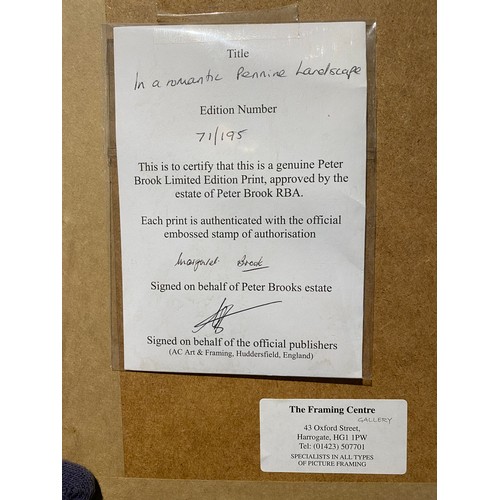 Title
In a romantic Pennine Landscape
Edition Number
71/195
This is to certify that this is a genuine Peter
Brook Limited Edition Print, approved by the
estate of Peter Brook RBA.
Each print is authenticated with the official
embossed stamp of authorisation
Margaret Brook
Signed on behalf of Peter Brooks estate
Signed on behalf of the official publishers
(AC Art & Framing, Huddersfield, England)
The Framing Centre
GALLERY
43 Oxford Street,
Harrogate, HG1 1PW
Tel: (01423) 507701
SPECIALISTS IN ALL TYPES
OF PICTURE FRAMING